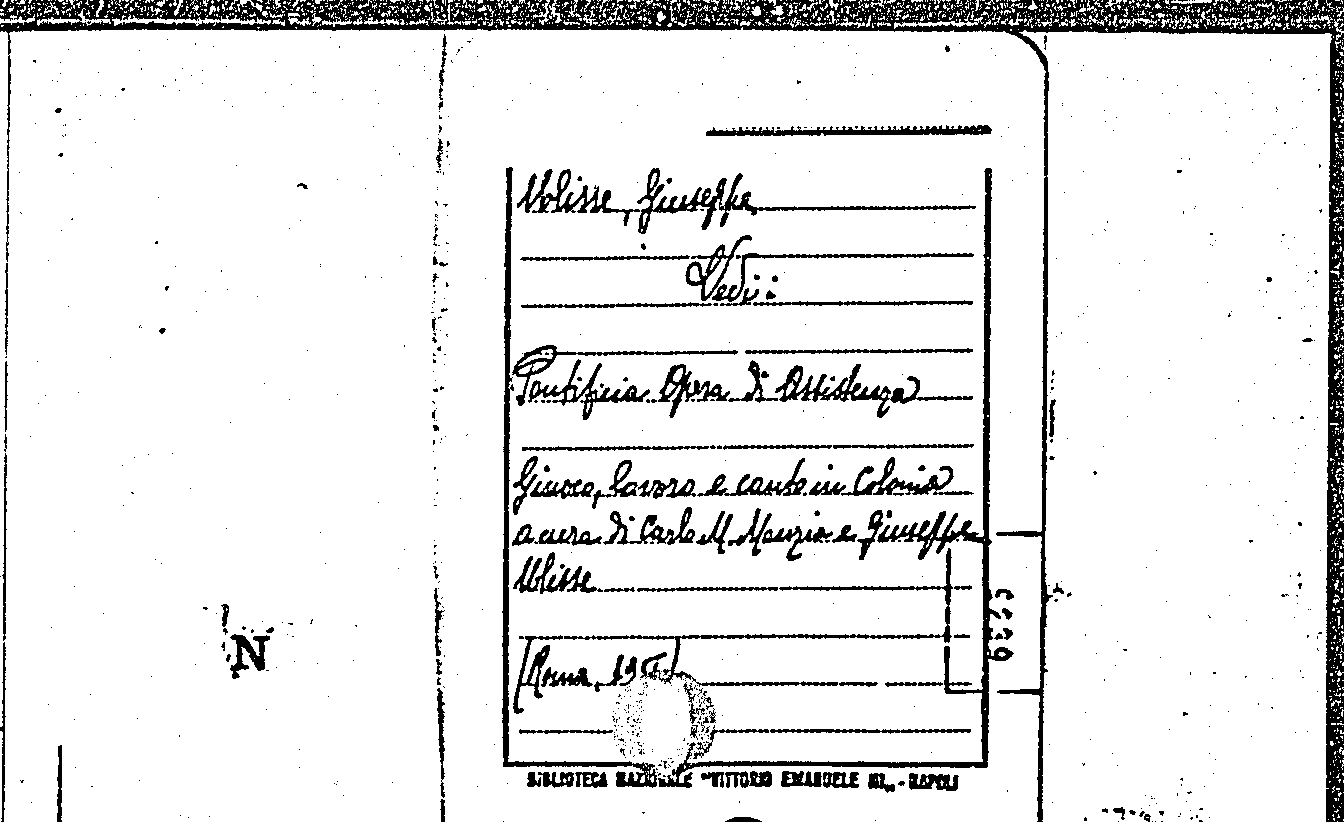 Ulisse, Giuseppe
Vedi:
Pontificia Opera di Assistenza
Giuoco, lavoro e canto in Colonia
a cura di Carlo M. Manzia e Giuseppe
Ulisse
(Roma,
BIBLIOTECA NAZIONALE "VITTORIO EMANUELE III" - NAPOLI
N